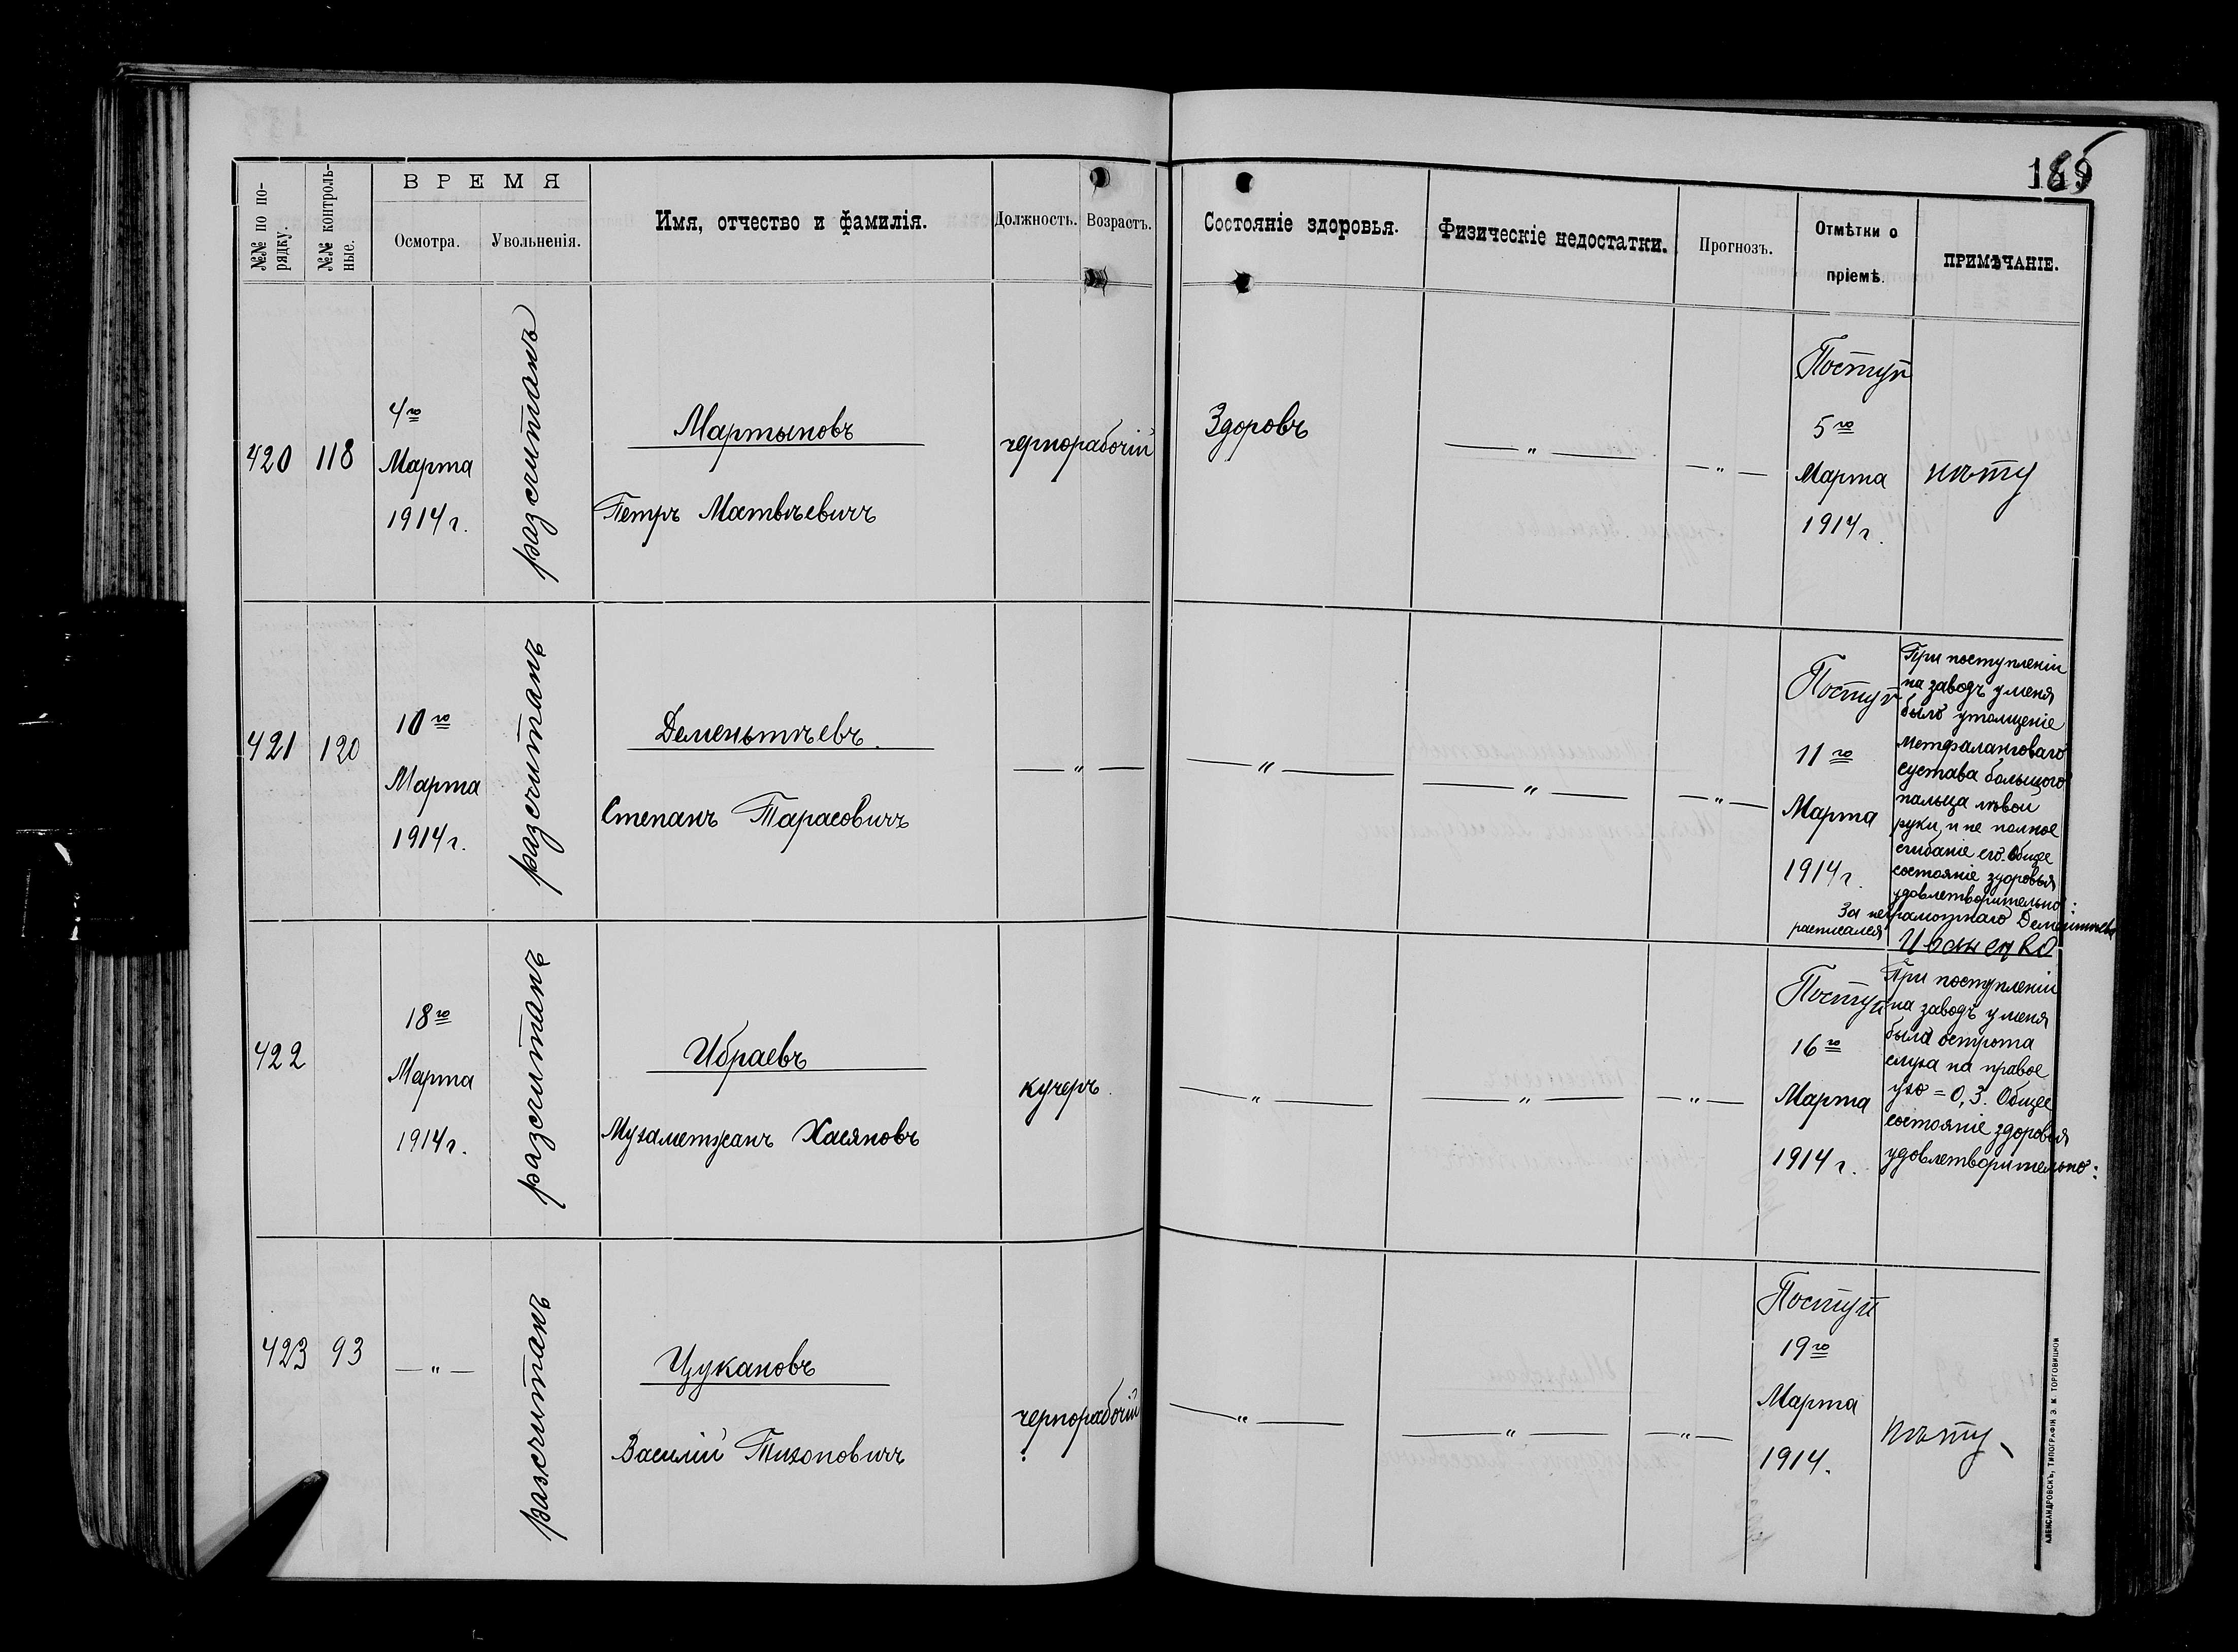 №№ по по-
рядку.
№№ контроль-
ные.
ВРЕМЯ
Осмотра.
Увольненія.
Имя, отчество и фамилія.
Должность.
Возрастъ.
Состояніе здоровья.
Физическіе недостатки.
Прогнозъ.
Отмѣтки о
пріемѣ.
ПРИМѢЧАНІЕ.
420
118
4го
Марта
1914 г.
разсчитанъ
Мартыновъ
Петръ Матвѣевичъ
чернорабочій
Здоровъ
— " —
— " —
Поступ
5го
Марта
1914 г.
421
120
10го
Марта
1914 г.
разсчитанъ
Деменьтѣевъ.
Степанъ Тарасовичъ
— " —
— " —
— " —
— " —
Поступ
11го
Марта
1914 г.
При поступленіи
на заводъ у меня
было утолщеніе
метфаланговаго
сустава большого
пальца лѣвой
руки, и не полное
сгибаніе его. Общее
состояніе здоровья
удовлетворительно:
За неграмотнаго Деменьтѣева
расписался Иваненко
422
18го
Марта
1914 г.
разсчитанъ
Ибраевъ
Мухаметжанъ Хасяновъ
кучеръ.
— " —
— " —
— " —
Поступ
16го
Марта
1914 г.
При поступленіи
на заводъ у меня
была острота
слуха на правое
ухо = 0,3. Общее
состояніе здоровья
удовлетворительно:
423
93
— " —
разсчитанъ
Цукановъ
Василій Тихоновичъ
чернорабочій
— " —
— " —
— " —
Поступ
19го
Марта
1914.
АЛЕКСАНДРОВСКЪ, ТИПОГРАФІЯ Э. М. ТОРГОВИЦКОЙ